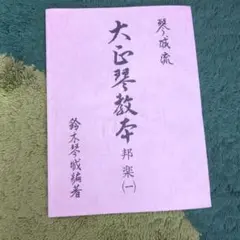 琴城流
大正琴教本
邦楽(一)
鈴木琴城編著